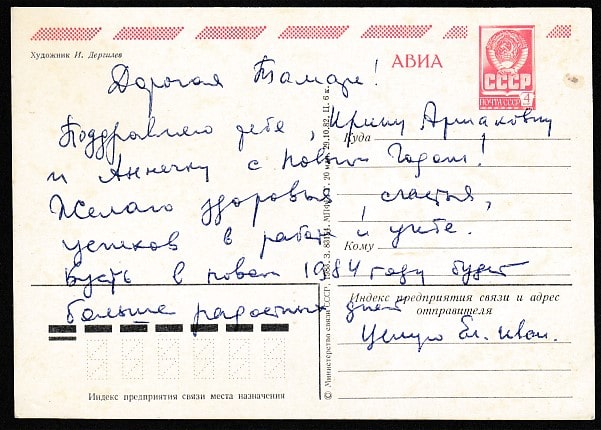 Художник И. Дергилев
АВИА
СССР
ПОЧТА СССР 4
Дорогая Тамара!
Поздравляю тебя, Ирину Аршаковну
Куда
и Аннечку с Новым Годом!
Желаю здоровья, счастья,
успехов в работе и учебе.
Кому
Пусть в новом 1984 году будет
Индекс предприятия связи и адрес отправителя
больше радостных дней
Целую Ел. Иван.
© Министерство связи СССР, 1983. З. МПФГ. 29.10.82. Ц. 6 к.
Индекс предприятия связи места назначения